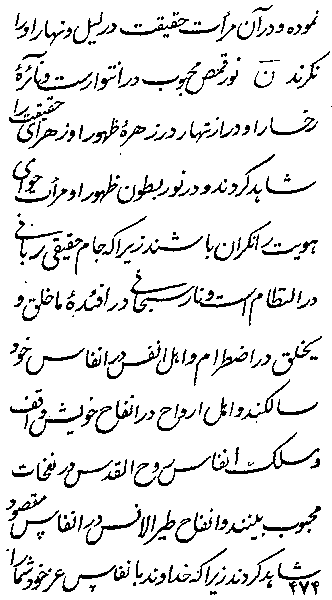 نموده و در آن مرآت حقیقت در لیل و نهار او را
نگرند ن نور قمص محبوب در انتوار است و نائرهٔ
رخسار او در ازتهار در زهرهٔ ظهور او زهرای حقیقت را
مشاهد کردند و در نور بطون ظهور او مرآت جوای
هویت را نگران باشند زیرا که جام حقیقی ربانی
در التظام است و نار سبحانی در افئدهٔ ما خلق و
یخلق در اضطرام و اهل انفس در انفاس خود
سالکند و اهل ارواح در انفاح خویش واقف
و مسلک انفاس روح القدس در نفخات
محبوب بینند و انفاح طیر الانس در انفاس مقصود
مشاهد کردند زیرا که خداوند بانفاس عز خود شما را
۴۷۴